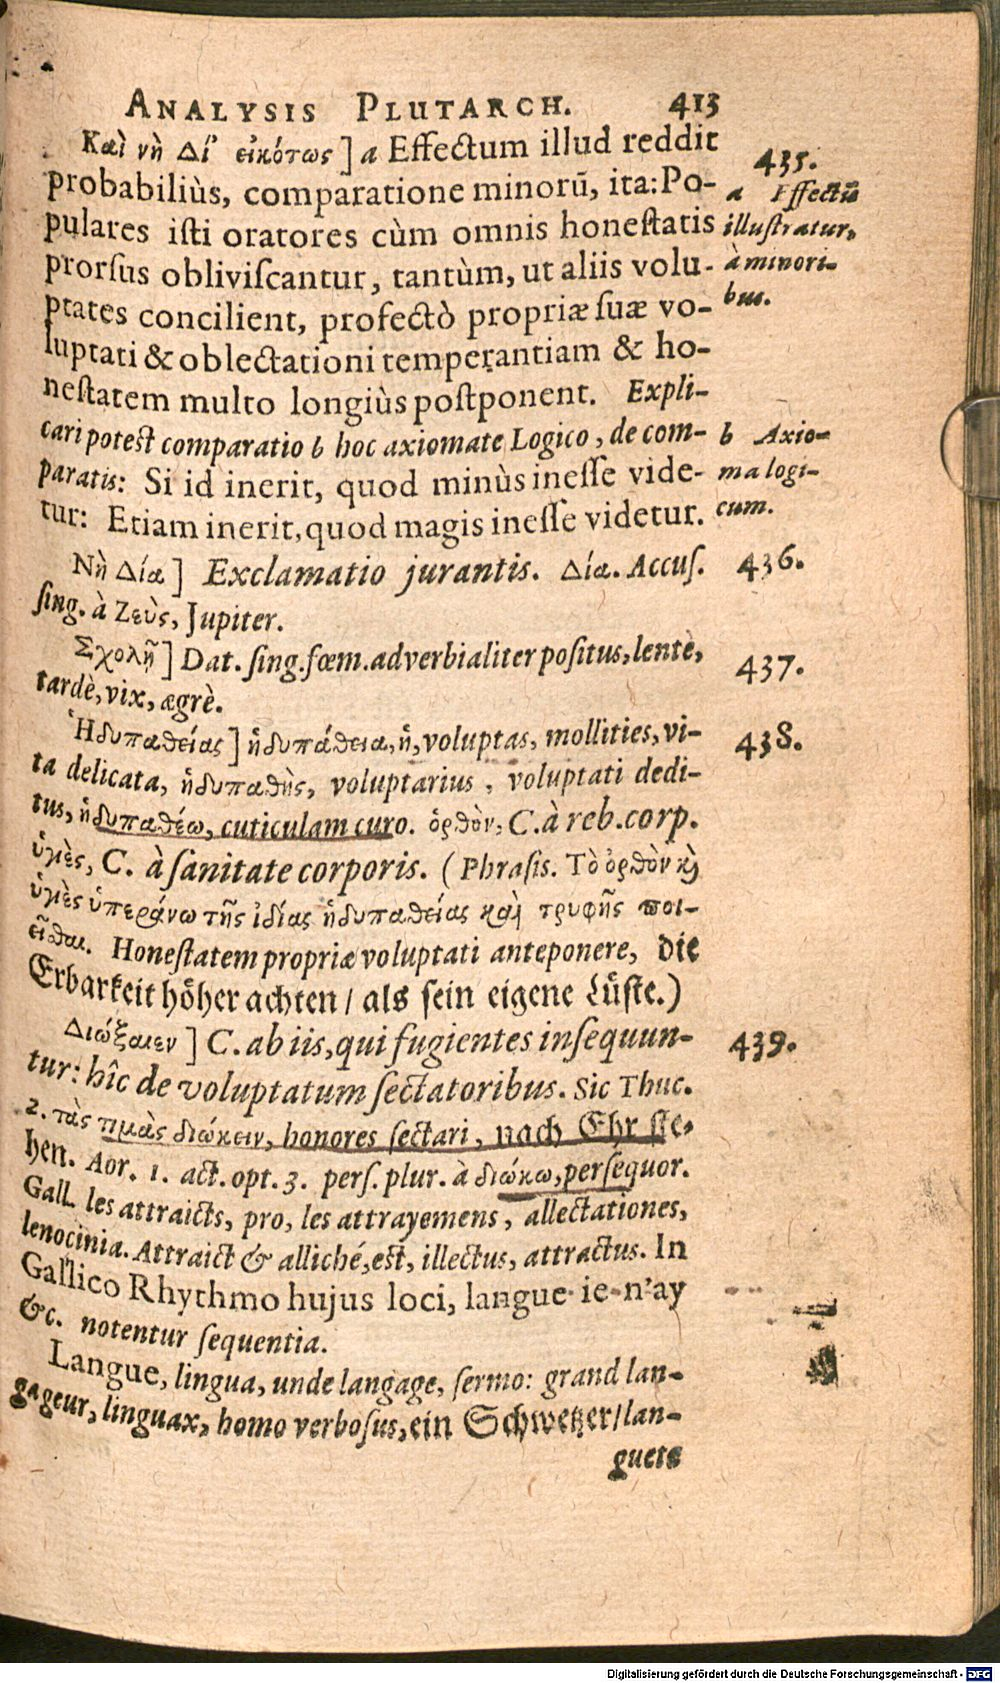 ANALYSIS PLUTARCH. 413
Καὶ νὴ Δί' εἰκότως] a Effectum illud reddit
435.
probabiliùs, comparatione minorū, ita: Po-
a Effectū
pulares isti oratores cùm omnis honestatis
illustratur,
prorsus obliviscantur, tantùm, ut aliis volu-
à minori-
ptates concilient, profectò propriæ suæ vo-
bus.
luptati & oblectationi temperantiam & ho-
nestatem multo longiùs postponent. Expli-
cari potest comparatio b hoc axiomate Logico, de com-
b Axio-
paratis: Si id inerit, quod minùs inesse vide-
ma logi-
tur: Etiam inerit, quod magis inesse videtur.
cum.
Νὴ Δία] Exclamatio jurantis. Δία. Accus.
436.
sing. à Ζεὺς, Jupiter.
Σχολῇ] Dat. sing. fœm. adverbialiter positus, lentè,
437.
tardè, vix, ægrè.
Ἡδυπαθείας] ἡδυπάθεια, ἡ, voluptas, mollities, vi-
438.
ta delicata, ἡδυπαθὴς, voluptarius, voluptati dedi-
tus, ἡδυπαθέω, cuticulam curo. ὀρθὸν, C. à reb. corp.
ὑγιὲς, C. à sanitate corporis. (Phrasis. Τὸ ὀρθὸν κὶ
ὑγιὲς ὑπεράνω τῆς ἰδίας ἡδυπαθείας καὶ τρυφῆς ποι-
εῖσθαι. Honestatem propriæ voluptati anteponere, die
Erbarkeit höher achten / als sein eigene Lüste.)
Διώξαιεν] C. ab iis, qui fugientes insequun-
439.
tur: hîc de voluptatum sectatoribus. Sic Thuc.
2. τὰς τιμὰς διώκειν, honores sectari, nach Ehr ste-
hen. Aor. 1. act. opt. 3. pers. plur. à διώκω, persequor.
Gall. les attraicts, pro, les attrayemens, allectationes,
lenocinia. Attraict & alliché, est, illectus, attractus. In
Gallico Rhythmo hujus loci, langue ie n'ay
&c. notentur sequentia.
Langue, lingua, unde langage, sermo: grand lan-
gageur, linguax, homo verbosus, ein Schwetzer / lan-
guete
Digitalisierung gefördert durch die Deutsche Forschungsgemeinschaft - DFG